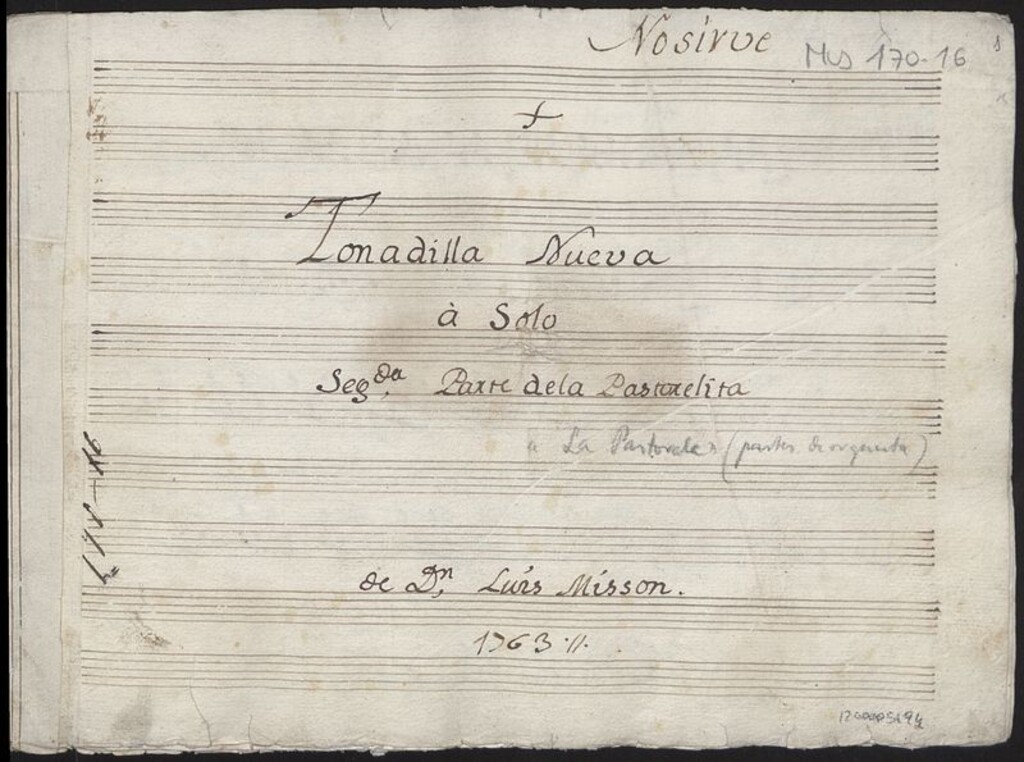 Nosirve
Mus 170-16
Tonadilla Nueva
à Solo
Seg.da Parte dela Pastorelita
"La Pastorela" (partes de orquesta)
de Dn. Luis Misson.
1763.//.